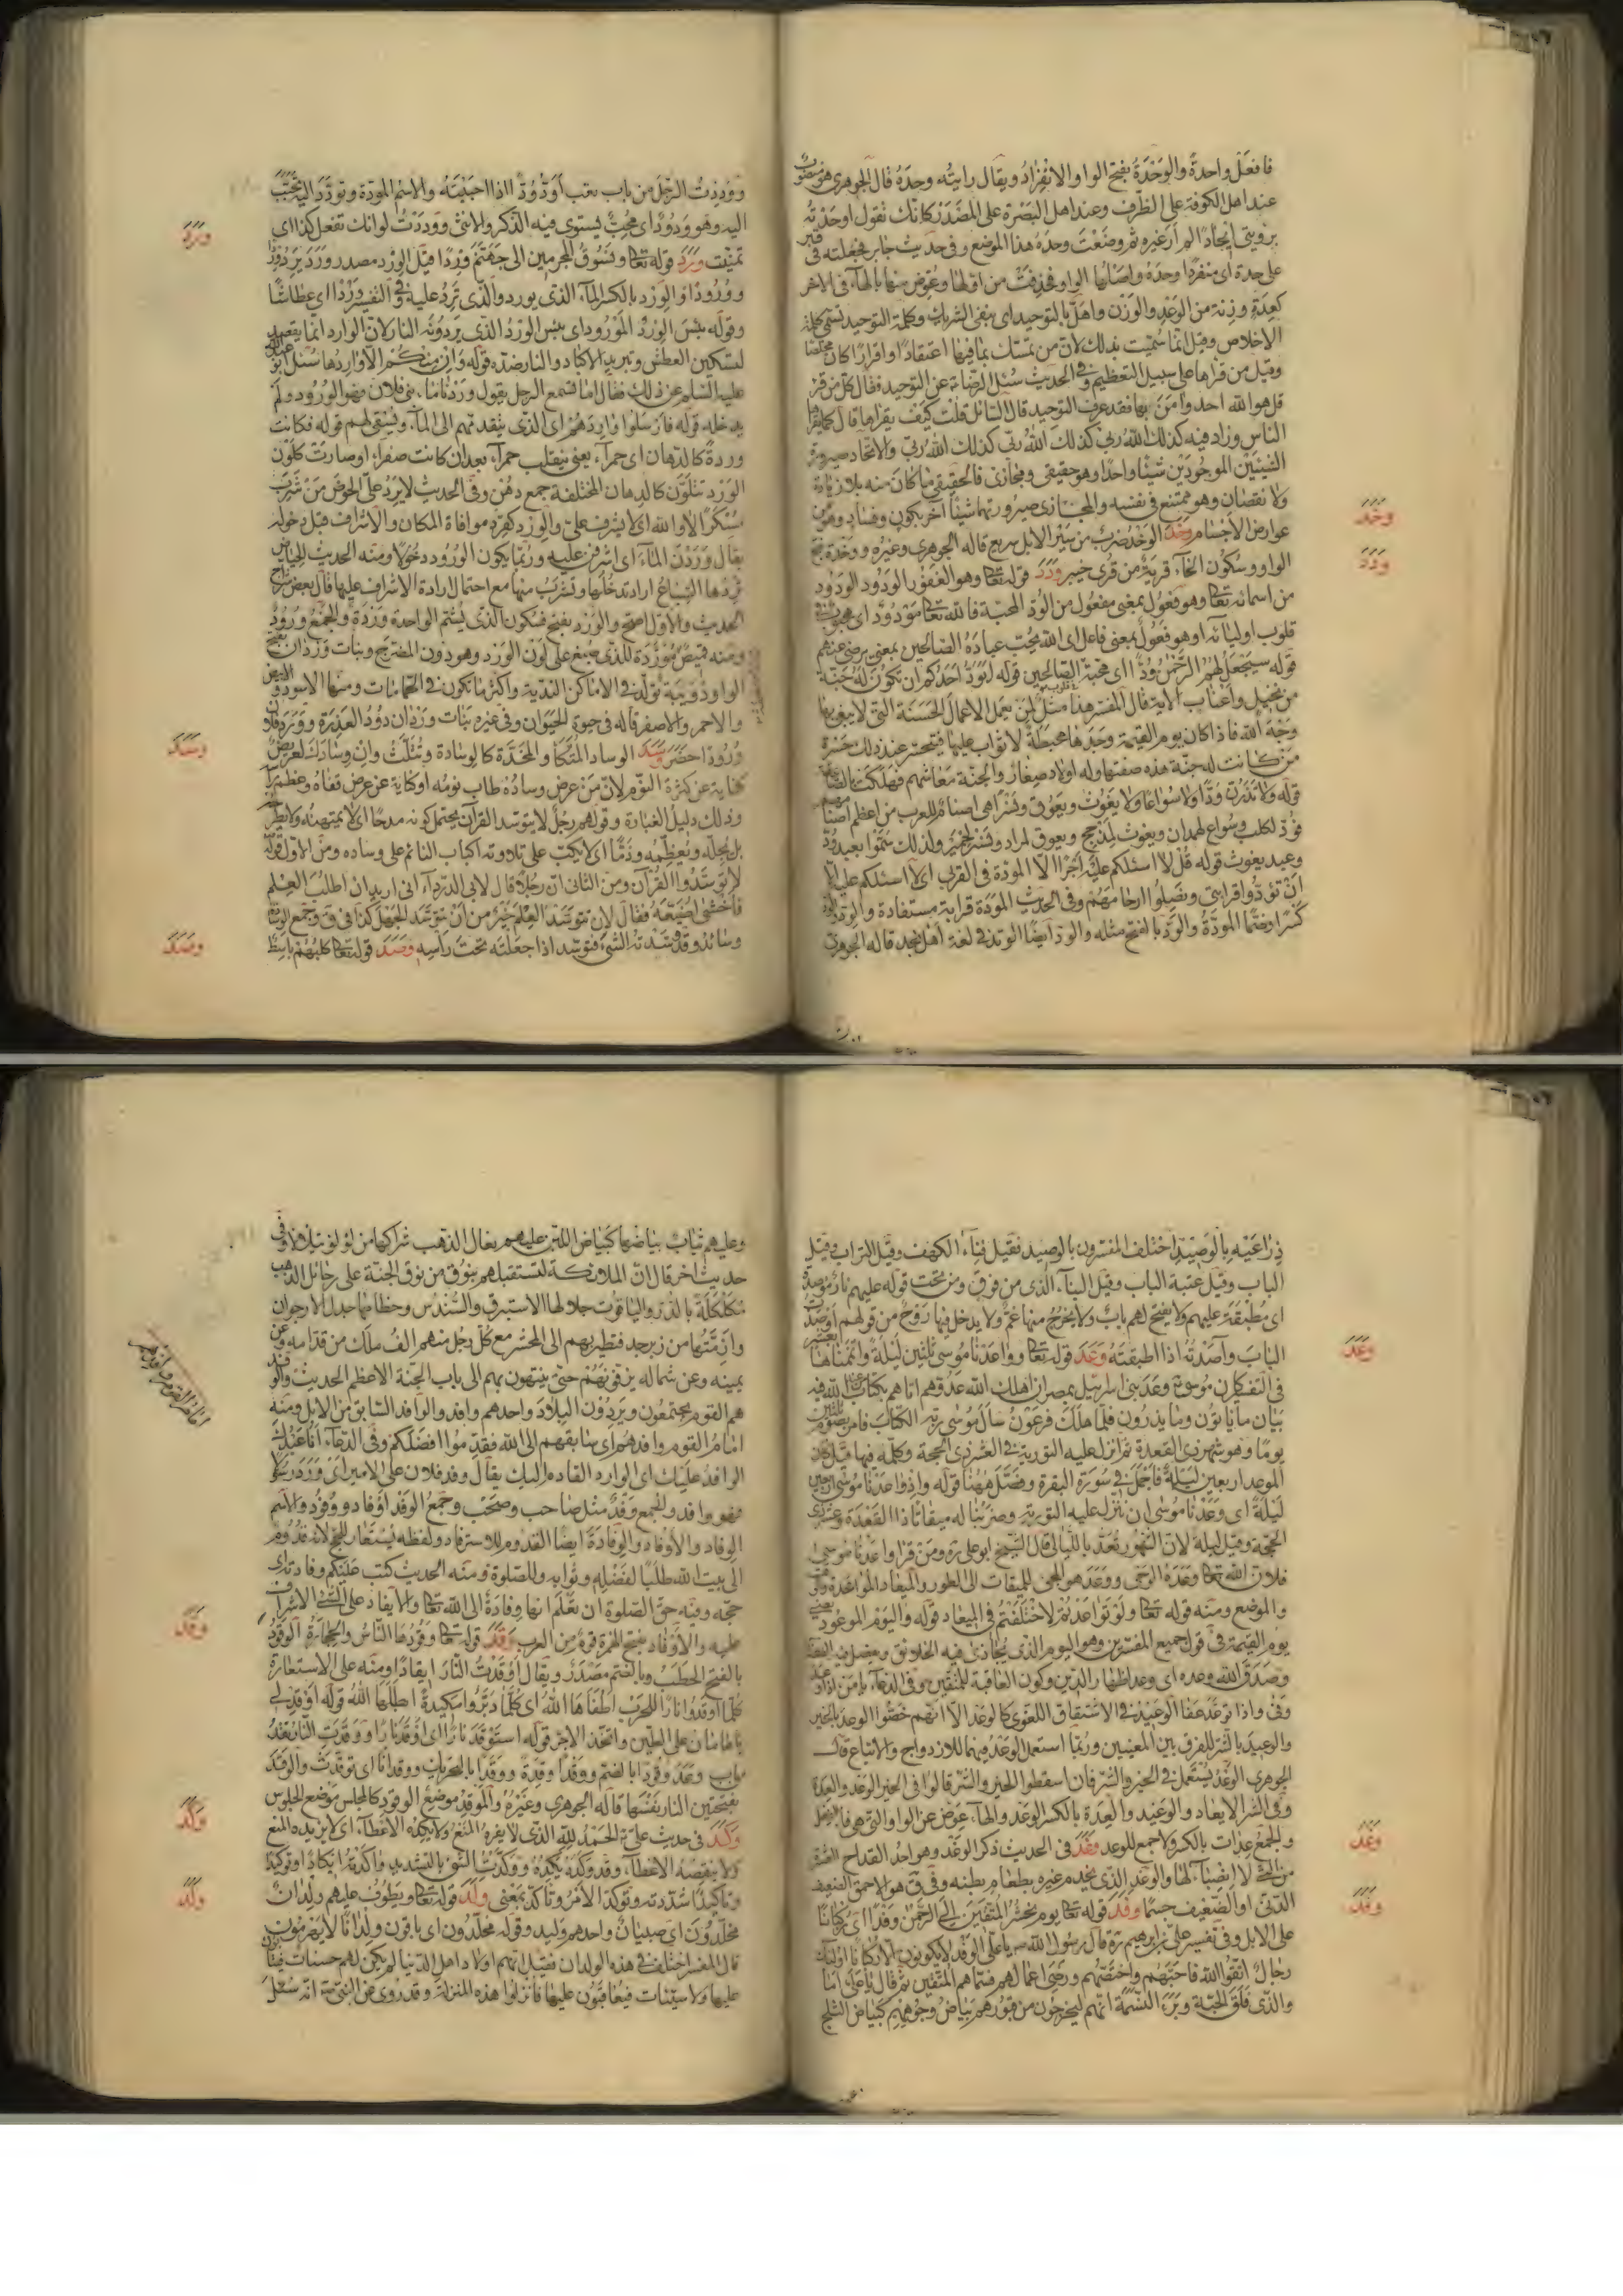 فافعل واحدة والوحدة بفتح الواو الانفراد ويقال رايته وحده قال الجوهري هو منصوب
عند اهل الكوفة على الظرف وعند اهل البصرة على المصدر كانك تقول اوحدته
برويتي ايجادا لم ار غيره ثم وضعت وحده هذا الموضع وفي حديث جابر فجعلته في قبر
على حدة اي منفردا وحده واصلها الواو فحذفت من اولها وعوض منها بالهاء في الاخر
كعدة وزنة من الوعد والوزن واهل التوحيد اي بنفي الشريك وكلمة التوحيد تسمى كلمة
الاخلاص وقيل انما سميت بذلك لان من تمسك بما فيها اعتقادا او اقرارا كان مخلصا
وقيل من قراها على سبيل التعظيم وفي الحديث سئل الرضا عن التوحيد فقال كل من قرا
قل هو الله احد وامن بها فقد عرف التوحيد قال السائل قلت كيف يقراها قال كما يقراها
الناس وزاد فيه كذلك الله ربي كذلك الله ربي كذلك الله ربي والاتحاد صيرورة
الشيئين الموجودين شيئا واحدا وهو حقيقي ومجازي فالحقيقي ما كان منه بلا زيادة
ولا نقصان وهو ممتنع في نفسه والمجازي صيرورتهما شيئا آخر بكون وفساد وهو من
عوارض الاجسام وخد الوخد ضرب من سير الابل سريع قاله الجوهري وغيره ووخدة بفتح
الواو وسكون الخاء قرية من قرى خيبر ودد قوله تعا وهو الغفور الودود الودود
من اسمائه تعا وهو فعول بمعنى مفعول من الود المحبة فالله تعا مودود اي محبوب في
قلوب اوليائه او هو فعول بمعنى فاعل اي الله يحب عباده الصالحين بمعنى يرضى عنهم
قوله سيجعل لهم الرحمن ودا اي محبة في قلوب الصالحين قوله ايود احدكم ان تكون له جنة
من نخيل واعناب الاية قال المفسر هذا مثل لمن يعمل الاعمال الحسنة التي لا يبغي بها
وجه الله فاذا كان يوم القيمة وجدها محبطة لا ثواب عليها فيتحسر عند ذلك حسرة
من كانت له جنة هذه صفتها وله اولاد صغار والجنة معاشهم فهلكت بالصاعقة
قوله ولا تذرن ودا ولا سواعا ولا يغوث ويعوق ونسرا هي اصنام للعرب من اعظم اصنامهم
فود لكلب وسواع لهمدان ويغوث لمذحج ويعوق لمراد ونسر لحمير ولذلك سموا بعبد ود
وعبد يغوث قوله قل لا اسئلكم عليه اجرا الا المودة في القربى اي لا اسئلكم عليه الا
ان تودوا قرابتي وتصلوا ارحامهم وفي الحديث المودة قرابة مستفادة والود
كسرا وضما المودة والود بالفتح مثله والود ايضا الوتد في لغة اهل نجد قاله الجوهري
وخد
ودد
ووددت الرجل من باب تعب اوده ودا اذا احببته والاسم المودة وتودد اليه تحبب
اليه وهو ودود اي محب يستوي فيه الذكر والانثى ووددت لو انك تفعل كذا اي
تمنيت ورد قوله تعا ونسوق المجرمين الى جهنم وردا قيل الورد مصدر ورد يرد وردا
وورودا والورد بالكسر الماء الذي يورد والذي ترد عليه وفي التفسير وردا اي عطاشا
وقوله بئس الورد المورود اي بئس الورد الذي يردونه النار لان الوارد انما يقصد
لتسكين العطش وتبريد الاكباد والنار ضده قوله وان منكم الا واردها سئل ابو عبد الله
عليه السلم عن ذلك فقال اما تسمع الرجل يقول وردنا ماء بني فلان فهو الورود ولم
يدخله قوله فارسلوا واردهم اي الذي يتقدمهم الى الماء ويستقي لهم قوله فكانت
وردة كالدهان اي حمراء يعني تنقلب حمراء بعد ان كانت صفراء او صارت كلون
الورد تتلون كالدهان المختلفة جمع دهن وفي الحديث لا يرد علي الحوض من شرب
مسكرا لا والله اي لا يشرف علي والورد كقرد موافاة المكان والاشراف قبل دخوله
يقال وردن الماء اي اشرفن عليه وربما يكون الورود دخولا ومنه الحديث للحياض
تردها السباع اراد تدخلها وتشرب منها مع احتمال ارادة الاشراف عليها قال بعض شراح
الحديث والاول اصح والورد بفتح فسكون الذي يشم الواحدة وردة والجمع ورود
ومنه قميص موردة للذي صبغ على لون الورد وهو دون المضرج وبنات وردان بفتح
الواو دويبة تولد في الاماكن الندية واكثر ما تكون في الحمامات ومنها الاسود والابيض
والاحمر والاصفر قاله في حيوة الحيوان وفي غيره بنات وردان دود العذرة وورد فلان
ورودا حضر وسد الوساد المتكأ والمخدة كالوسادة وتثلث وان وسادك لعريض
كناية عن كثرة النوم لان من عرض وساده طاب نومه او كناية عن عرض قفاه وعظم راسه
وذلك دليل الغباوة وقولهم رجل لا يتوسد القرآن يحتمل كونه مدحا اي لا يمتهنه ولا يطرحه
بل يجله ويعظمه وذما اي لا يكب على تلاوته اكباب النائم على وساده ومن الاول قوله
لا توسدوا القرآن ومن الثاني ان رجلا قال لابي الدرداء اني اريد ان اطلب العلم
فاخشى اضيعه فقال لان تتوسد العلم خير من ان تتوسد الجهل كذا في ق وجمع الوسادة
وسائد وقد وسدته الشيء فتوسد اذا جعلته تحت راسه وصد قوله تعا كلبهم باسط
ورد
وسد
وصد
ذراعيه بالوصيد اختلف المفسرون بالوصيد فقيل فناء الكهف وقيل التراب وقيل
الباب وقيل عتبة الباب وقيل البناء الذي من فوق ومن تحت قوله عليهم نار موصدة
اي مطبقة عليهم ولا يفتح لهم باب ولا يخرج منها غم ولا يدخل فيها روح من قولهم اوصدت
الباب وآصدته اذا اطبقته وعد قوله تعا وواعدنا موسى ثلثين ليلة واتممناها بعشر
في التفسير ان موسى وعد بني اسرائيل بمصر ان اهلك الله عدوهم اتاهم بكتاب من عند الله فيه
بيان ما ياتون وما يذرون فلما هلك فرعون سأل موسى ربه الكتاب فامر بصوم ثلثين
يوما وهو شهر ذي القعدة ثم انزل عليه التورية في العشر ذي الحجة وكلمه فيها قيل كان
الموعد اربعين ليلة فاجمل في سورة البقرة وفصل ههنا قوله واذ واعدنا موسى اربعين
ليلة اي وعدنا موسى ان ننزل عليه التورية وضربنا له ميقاتا ذا القعدة وعشر ذي
الحجة وقيل ليلة لان الشهور تعد بالليالي قال الشيخ ابو علي ره ومن قرا واعدنا موسى
فلان الله تعا وعده الوحي ووعد هو المجي للميقات الى الطور والميعاد المواعدة والوقت
والموضع ومنه قوله تعا ولو تواعدتم لاختلفتم في الميعاد قوله واليوم الموعود يعني
يوم القيمة في قول جميع المفسرين وهو اليوم الذي يجازى فيه الخلائق ويفصل فيه القضاء
وصدق الله وعده اي وعد اظهار الدين وكون العاقبة للمتقين وفي الدعاء يا من اذا وعد
وفى واذا توعد عفا الوعيد في الاشتقاق اللغوي كالوعد الا انهم خصوا الوعد بالخير
والوعيد بالشر للفرق بين المعنيين وربما استعمل الوعد فيهما للازدواج والاتباع قال
الجوهري الوعد يستعمل في الخير والشر فان اسقطوا الخير والشر قالوا في الخير الوعد والعدة
وفي الشر الايعاد والوعيد والعدة بالكسر الوعد والهاء عوض عن الواو التي هي فاء الفعل
والجمع عدات بالكسر ولا جمع للوعد وغد في الحديث ذكر الوغد وهو احد القداح العشرة
من التي لا انصباء لها والوغد الذي يخدم غيره بطعام بطنه وفي ق هو الاحمق الضعيف
الدني او الضعيف جسما وفد قوله تعا يوم نحشر المتقين الى الرحمن وفدا اي ركبانا
على الابل وفي تفسير علي بن ابراهيم ره قال رسول الله ص يا علي الوفد لا يكونون الا ركبانا اولئك
رجال اتقوا الله فاحبهم واختصهم ورضي اعمالهم فسماهم المتقين ثم قال يا علي اما
والذي فلق الحبة وبرء النسمة انهم ليخرجون من قبورهم بياض وجوههم كبياض الثلج
وعد
وغد
وفد
وعليهم ثياب بياضها كبياض اللبن عليهم نعال الذهب شراكها من لؤلؤ يتلألأ وفي
حديث اخر قال ان الملائكة لتستقبلهم بنوق من نوق الجنة على رحائل الذهب
مكللة بالدر والياقوت جلالها الاستبرق والسندس وخطامها جدل الارجوان
وازمتها من زبرجد فتطير بهم الى المحشر مع كل رجل منهم الف ملك من قدامه وعن
يمينه وعن شماله يزفونهم حتى ينتهون بهم الى باب الجنة الاعظم الحديث والوفد
هم القوم يجتمعون ويردون البلاد واحدهم وافد والوافد السابق من الابل ومنه
امام القوم وافدهم اي سابقهم الى الله فقدموا افضلكم وفي الدعاء انا عبدك
الوافد عليك اي الوارد القادم اليك يقال وفد فلان على الامير اي ورد رسولا
فهو وافد والجمع وفد مثل صاحب وصحب وجمع الوفد اوفاد ووفود والاسم
الوفاد والاوفاد والوفادة ايضا القدوم للاسترفاد ولفظه يستعار للحج لانه قدوم
الى بيت الله طلبا لفضله وثوابه وللصلوة ومنه الحديث كتب عليكم وفادتك
حجه وفيه حق الصلوة ان تعلم انها وفادة الى الله تعا والايفاد على الشيء الاشراف
عليه والاوفاد بفتح الهمزة قوم من العرب وقد قوله تعا وقودها الناس والحجارة الوقود
بالفتح الحطب وبالضم مصدر ويقال اوقدت النار ايقادا ومنه على الاستعارة
كلما اوقدوا نارا للحرب اطفاها الله اي كلما دبروا مكيدة ابطلها الله قوله اوقد لي
يا هامان على الطين واتخذ الاجر قوله استوقد نارا اي اوقد نارا ووقدت النار تقد
من باب وعد وقودا بالضم ووقدا وقدة ووقدا بالتحريك ووقدانا اي توقدت والوقد
بفتحتين النار نفسها قاله الجوهري وغيره والموقد موضع الوقود كالمجلس موضع الجلوس
وكد في حديث علي ع الحمد لله الذي لا يفره المنع ولا يكده الاعطاء اي لا يزيده المنع
ولا ينقصه الاعطاء وقد وكده يكده ووكدت الشيء بالتشديد واكدته ايكادا وتوكيدا
وتاكيدا شددته وتوكد الامر وتاكد بمعنى ولد قوله تعا ويطوف عليهم ولدان
مخلدون اي صبيان واحدهم وليد وقوله مخلدون اي باقون ولدانا لا يهرمون
قال المفسر اختلف في هذه الولدان فقيل انهم اولاد اهل الدنيا لم يكن لهم حسنات فيثابون
عليها ولا سيئات فيعاقبون عليها فانزلوا هذه المنزلة وقد روي عن النبي ص انه سئل
وقد
وكد
ولد